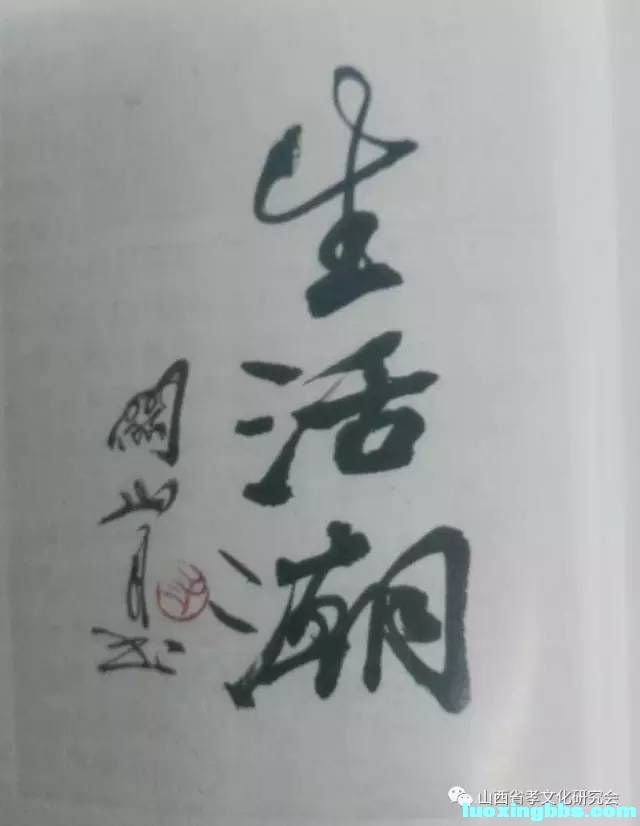 生活潮
關山月书
山西省孝文化研究会
luoxingbbs.com